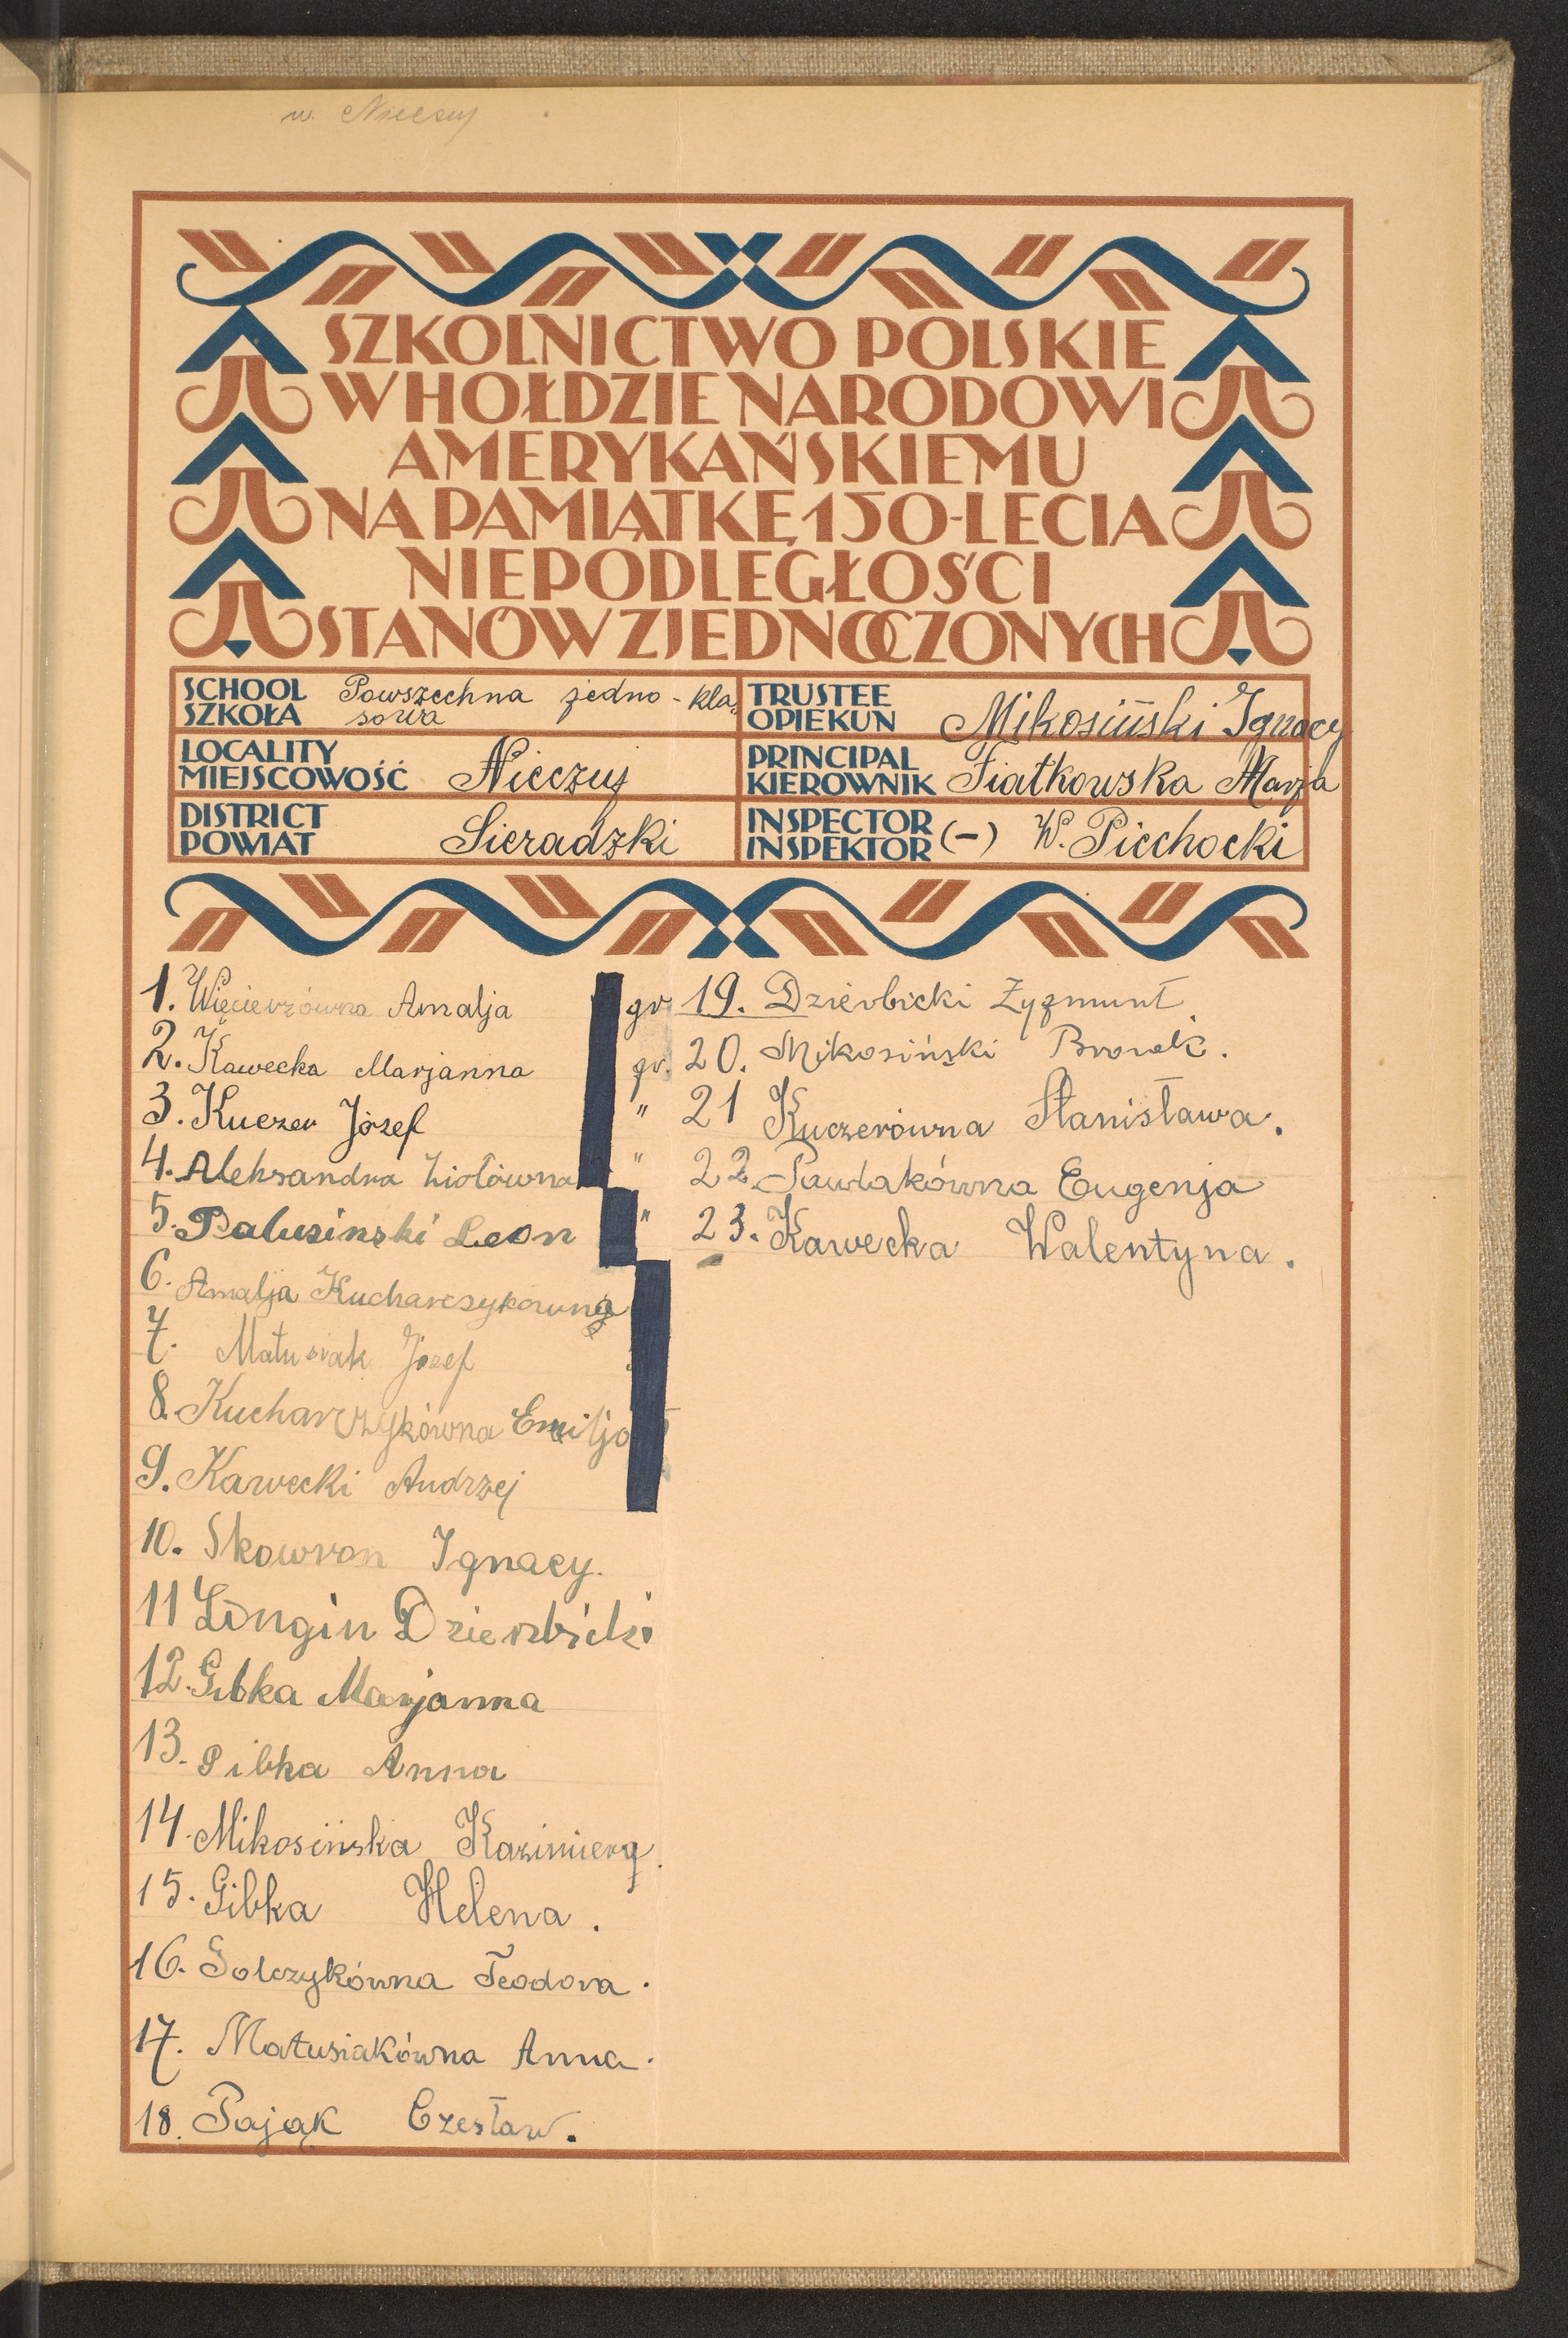 w. Nieczuj
SZKOLNICTWO POLSKIE
W HOŁDZIE NARODOWI
AMERYKAŃSKIEMU
NA PAMIĄTKĘ 150-LECIA
NIEPODLEGŁOŚCI
STANÓW ZJEDNOCZONYCH
SCHOOL
SZKOŁA
Powszechna jedno-kla-
sowa
TRUSTEE
OPIEKUN
Mikosiński Ignacy
LOCALITY
MIEJSCOWOŚĆ
Nieczuj
PRINCIPAL
KIEROWNIK
Fiatkowska Marja
DISTRICT
POWIAT
Sieradzki
INSPECTOR
INSPEKTOR
(-) W. Piechocki
1. Więcierzówna Amalja
2. Kawecka Marjanna
3. Kuczer Józef
4. Aleksandra Ziołówna
5. Palusinski Leon
6. Amalja Kucharczykówna
7. Matusiak Józef
8. Kucharczykówna Emilja
9. Kawecki Andrzej
10. Skowron Ignacy.
11 Longin Dzierbicki
12. Gibka Marjanna
13. Gibka Anna
14. Mikosińska Kazimiera.
15. Gibka Helena.
16. Solczykówna Teodora.
17. Matusiakówna Anna.
18. Pająk Czesław.
gr. 19. Dzierbicki Zygmunt.
gr. 20. Mikosiński Bronek.
" 21 Kuczerówna Stanisława.
" 22. Pawlakówna Eugenja
" 23. Kawecka Walentyna.